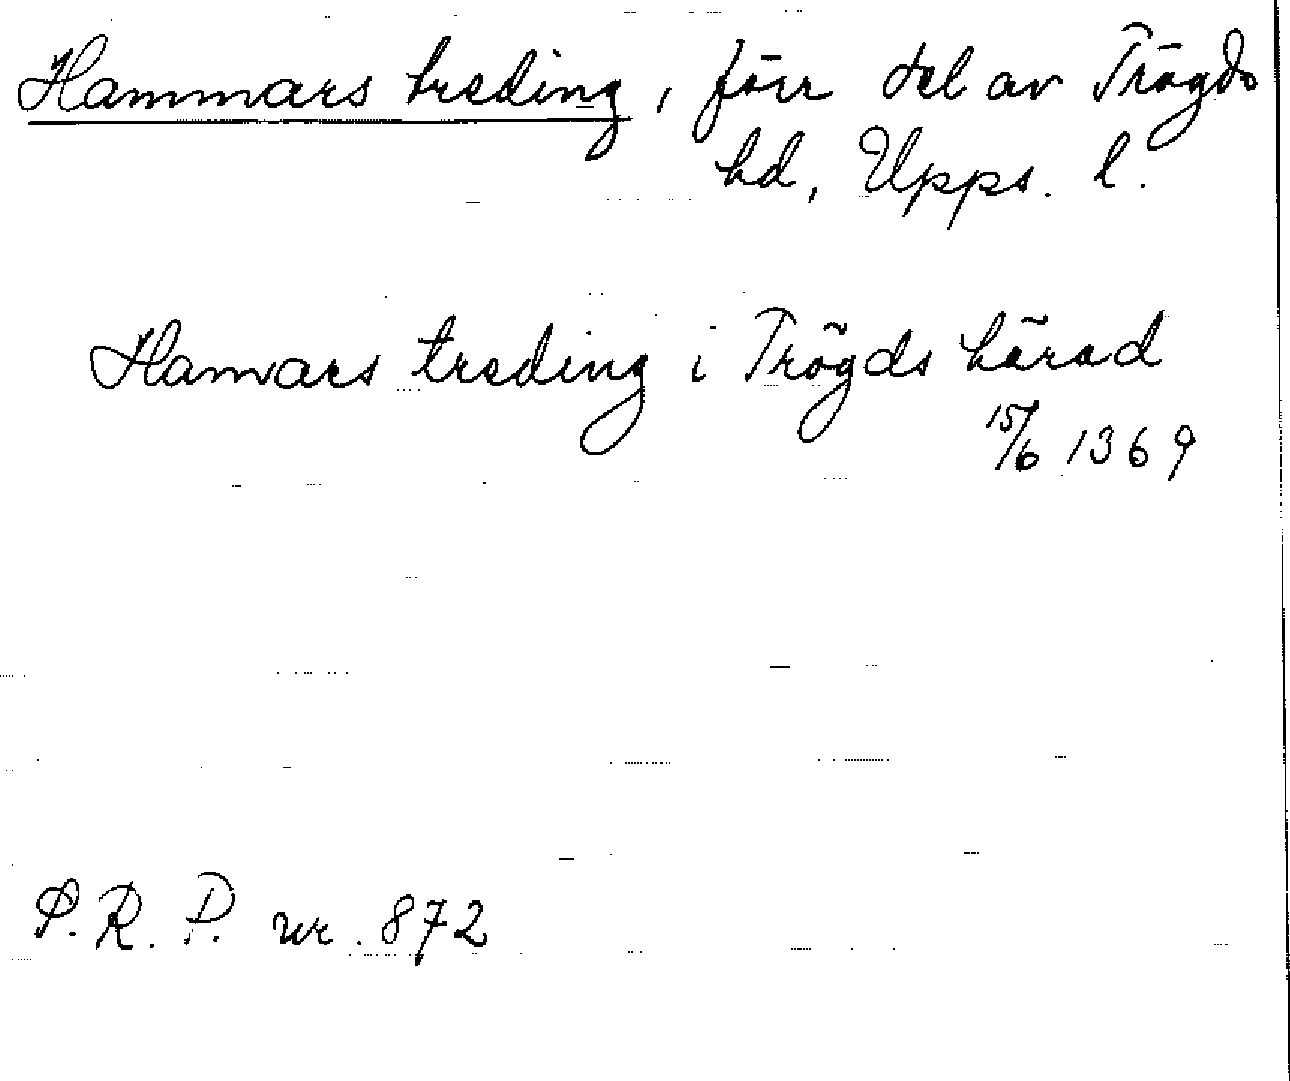 Hammars treding, förr del av Trögds
hd, Upps. l.
Hamars treding i Trögds härad
15/6 1369
S.R.P. nr. 872